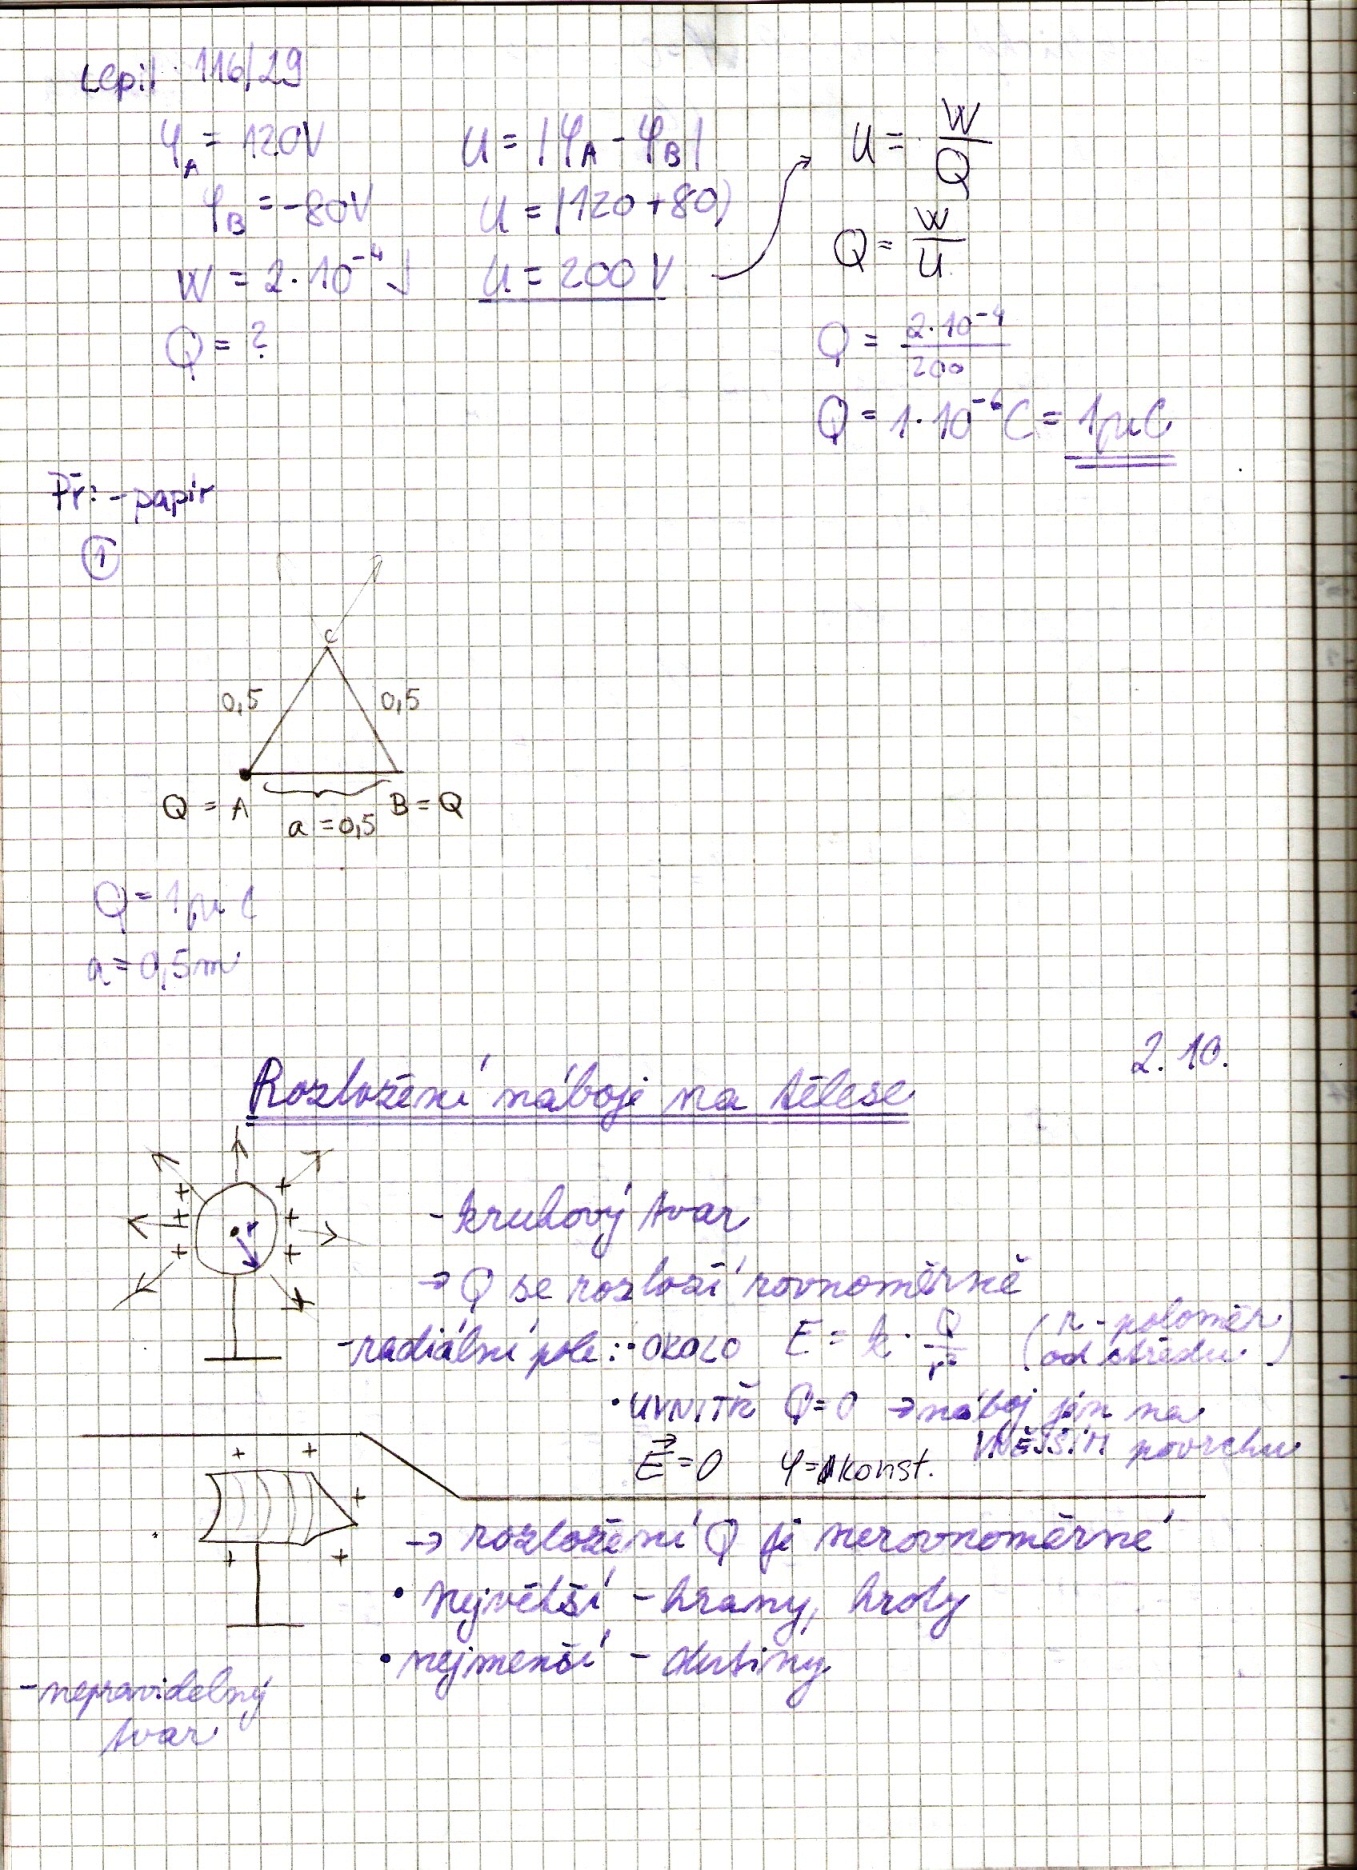 Lepil 116/29
φA = 120V
φB = -80V
W = 2·10⁻⁴ J
Q = ?
U = |φA - φB|
U = |120+80|
U = 200 V
U = W/Q
Q = W/U
Q = 2·10⁻⁴/200
Q = 1·10⁻⁶C = 1μC
Př: - papír
1
C
0,5 0,5
Q = A B = Q
a = 0,5
Q = 1μC
a = 0,5m
2.10.
Rozložení náboje na tělese
+ + + + + +
r
- kruhový tvar
→ Q se rozloží rovnoměrně
- radiální pole: · OKOLO E = k · Q/r² (r - poloměr
od středu)
· UVNITŘ Q=0 → náboj jen na
VNĚJŠÍM povrchu
E⃗ = 0 φ = konst.
+ + + + +
→ rozložení Q je nerovnoměrné
• největší - hrany, hroty
• nejmenší - dutiny
- nepravidelný
tvar